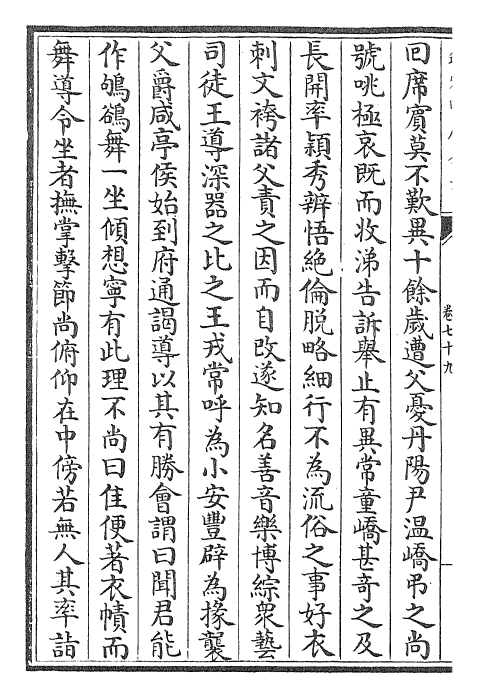 卷七十九
回席賔莫不歎異十餘歲遭父憂丹陽尹温嶠弔之尚
號咷極哀既而收涕告訴舉止有異常童嶠甚奇之及
長開率穎秀辨悟絶倫脱略細行不為流俗之事好衣
刺文袴諸父責之因而自改遂知名善音樂博綜衆藝
司徒王導深器之比之王戎常呼為小安豐辟為掾襲
父爵咸亭侯始到府通謁導以其有勝會謂曰聞君能
作鴝鵒舞一坐傾想寧有此理不尚曰佳便著衣幘而
舞導令坐者撫掌擊節尚俯仰在中傍若無人其率詣